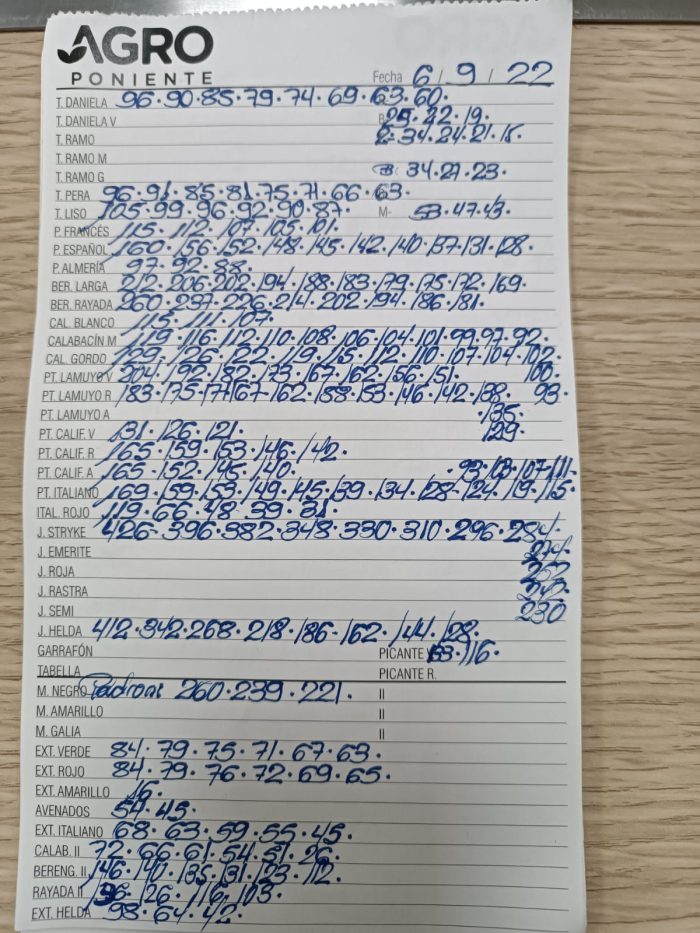 AGRO
PONIENTE
Fecha 6/9/22
T. DANIELA 96.90.85.79.74.69.63.60.
T. DANELA V 25.22.19.
T. RAMO 34.24.21.18.
T. RAMO M
T. RAMO G 34.27.23.
T. PERA 96.91.85.81.75.71.66.63.
T. LISO 105.99.96.92.90.87. M- 53.47.43.
P. FRANCÉS 115.112.107.105.101.
P. ESPAÑOL 160.156.152.148.145.142.140.137.131.128.
P. ALMERÍA 97.92.88.
BER. LARGA 212.206.202.194.188.183.179.175.172.169.
BER. RAYADA 260.237.226.214.202.194.186.181.
CAL. BLANCO 115.111.107.
CALABACÍN M 119.116.112.110.108.106.104.101.99.97.92.
CAL. GORDO 129.126.122.119.115.112.110.107.104.102.
PT. LAMUYO V 204.192.182.173.167.162.156.151. 100.
PT. LAMUYO R 183.175.171.167.162.158.153.146.142.138. 93.
PT. LAMUYO A .135.
PT. CALIF. V 131.126.121. 129.
PT. CALIF. R 165.159.153.146.142.
PT. CALIF. A 165.152.145.140. .93.103.107.111.
PT. ITALIANO 169.159.153.149.145.139.134.128.124.119.115.
ITAL. ROJO 119.66.48.39.31.
J. STRYKE 426.396.382.348.330.310.296.284.
J. EMERITE 274.
J. ROJA
J. RASTRA
J. SEMI 230
J. HELDA 412.342.268.218.186.162.144.128.
GARRAFÓN PICANTE 116.
TABELLA PICANTE R.
M. NEGRO Padron: 260.239.221. II
M. AMARILLO II
M. GALIA II
EXT. VERDE 84.79.75.71.67.63.
EXT. ROJO 84.79.76.72.69.65.
EXT. AMARILLO 16.
AVENADOS 54.45.
EXT. ITALIANO 68.63.59.55.45.
CALAB. II 72.66.61.54.51.26.
BERENG. II 146.140.135.131.123.112.
RAYADA II 126.116.103.
EXT. HELDA 98.64.42.